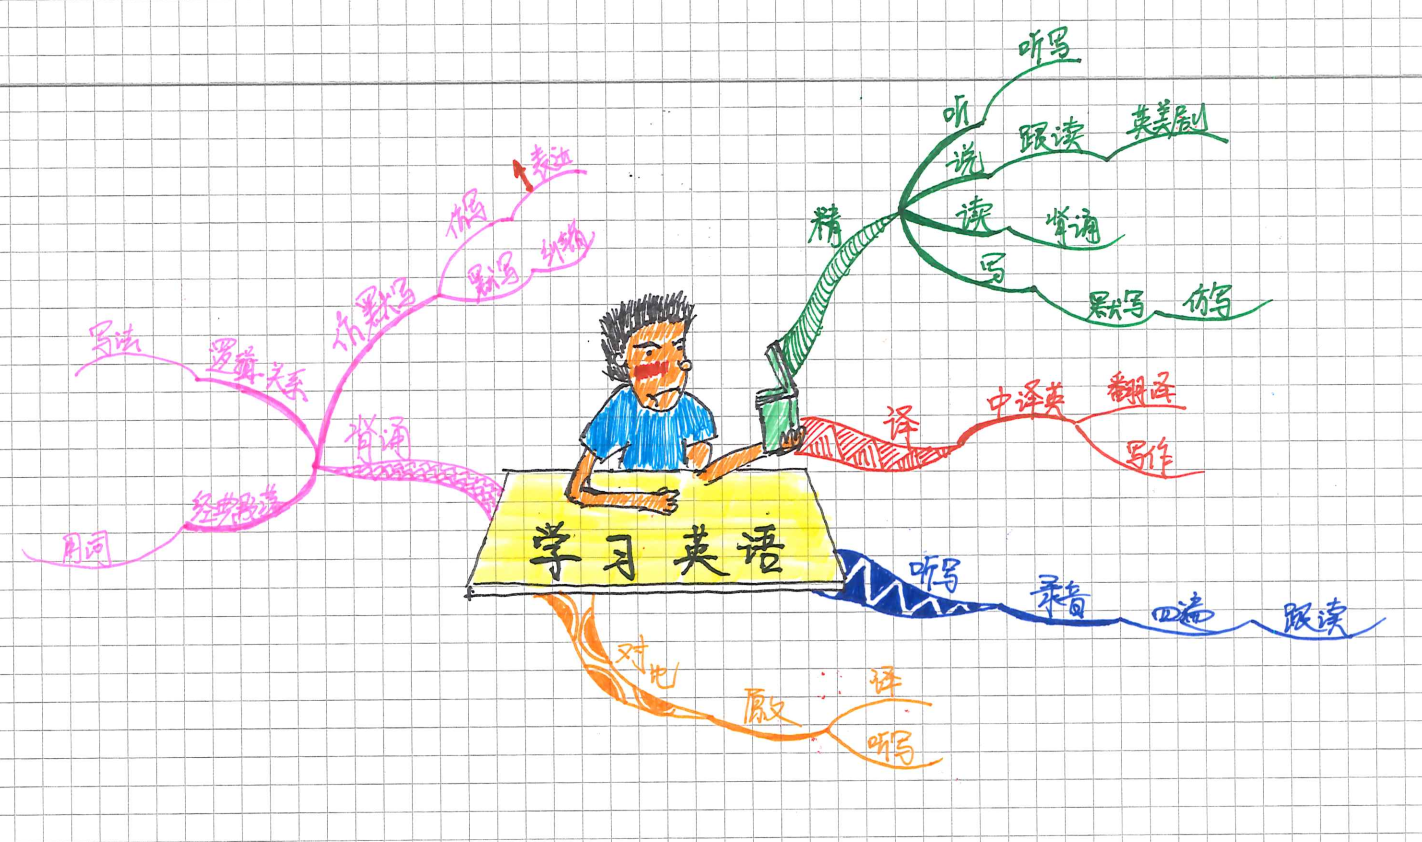 学习英语
精
听
听写
说
跟读
英美剧
读
背诵
写
默写
仿写
译
中译英
翻译
写作
听写
录音
四遍
跟读
对比
原文
译
听写
背诵
仿默写
仿写
表达
默写
纠错
逻辑关系
写法
经典段落
用词